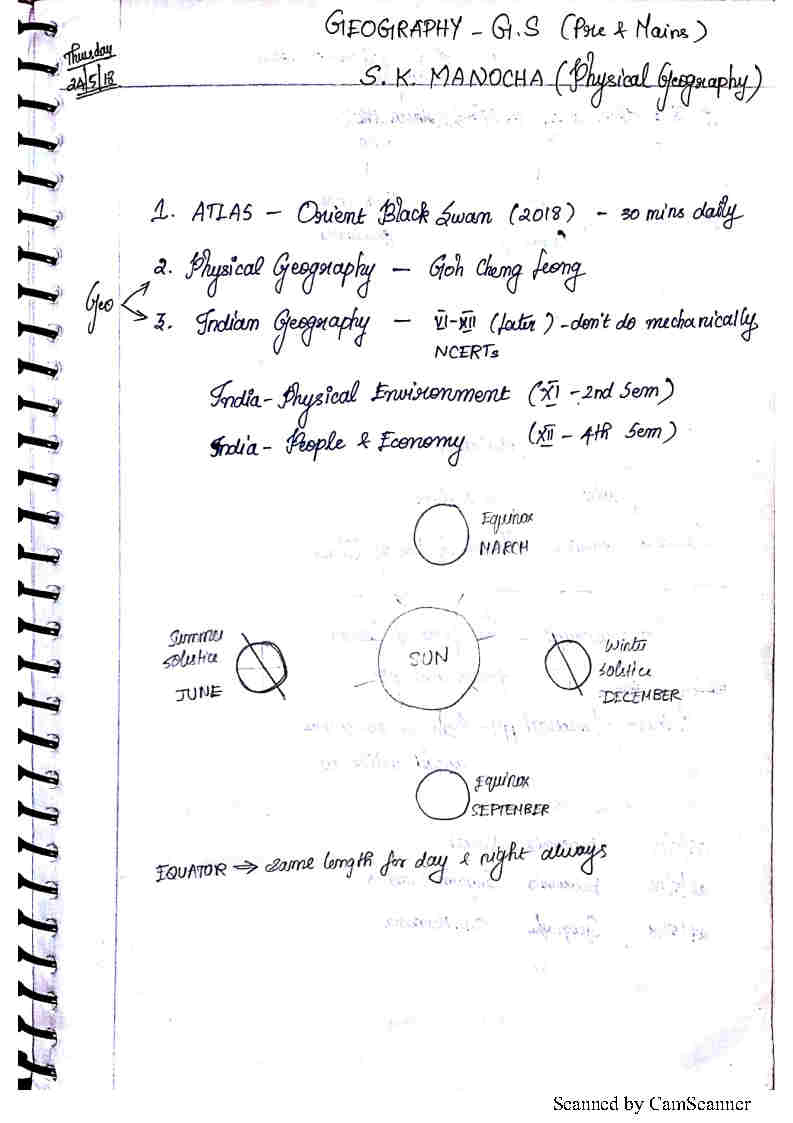 GEOGRAPHY - G.S (Pre & Mains)
Thursday
24/5/18
S. K. MANOCHA (Physical Geography)
1. ATLAS - Orient Black Swan (2018) - 30 mins daily
2. Physical Geography - Goh Cheng Leong
Geo
3. Indian Geography - VI-XII (later) - don't do mechanically
NCERTs
India - Physical Environment (XI - 2nd Sem)
India - People & Economy (XII - 4th Sem)
Equinox
MARCH
Summer
solstice
JUNE
SUN
Winter
solstice
DECEMBER
Equinox
SEPTEMBER
EQUATOR ⇒ same length for day & night always
Scanned by CamScanner